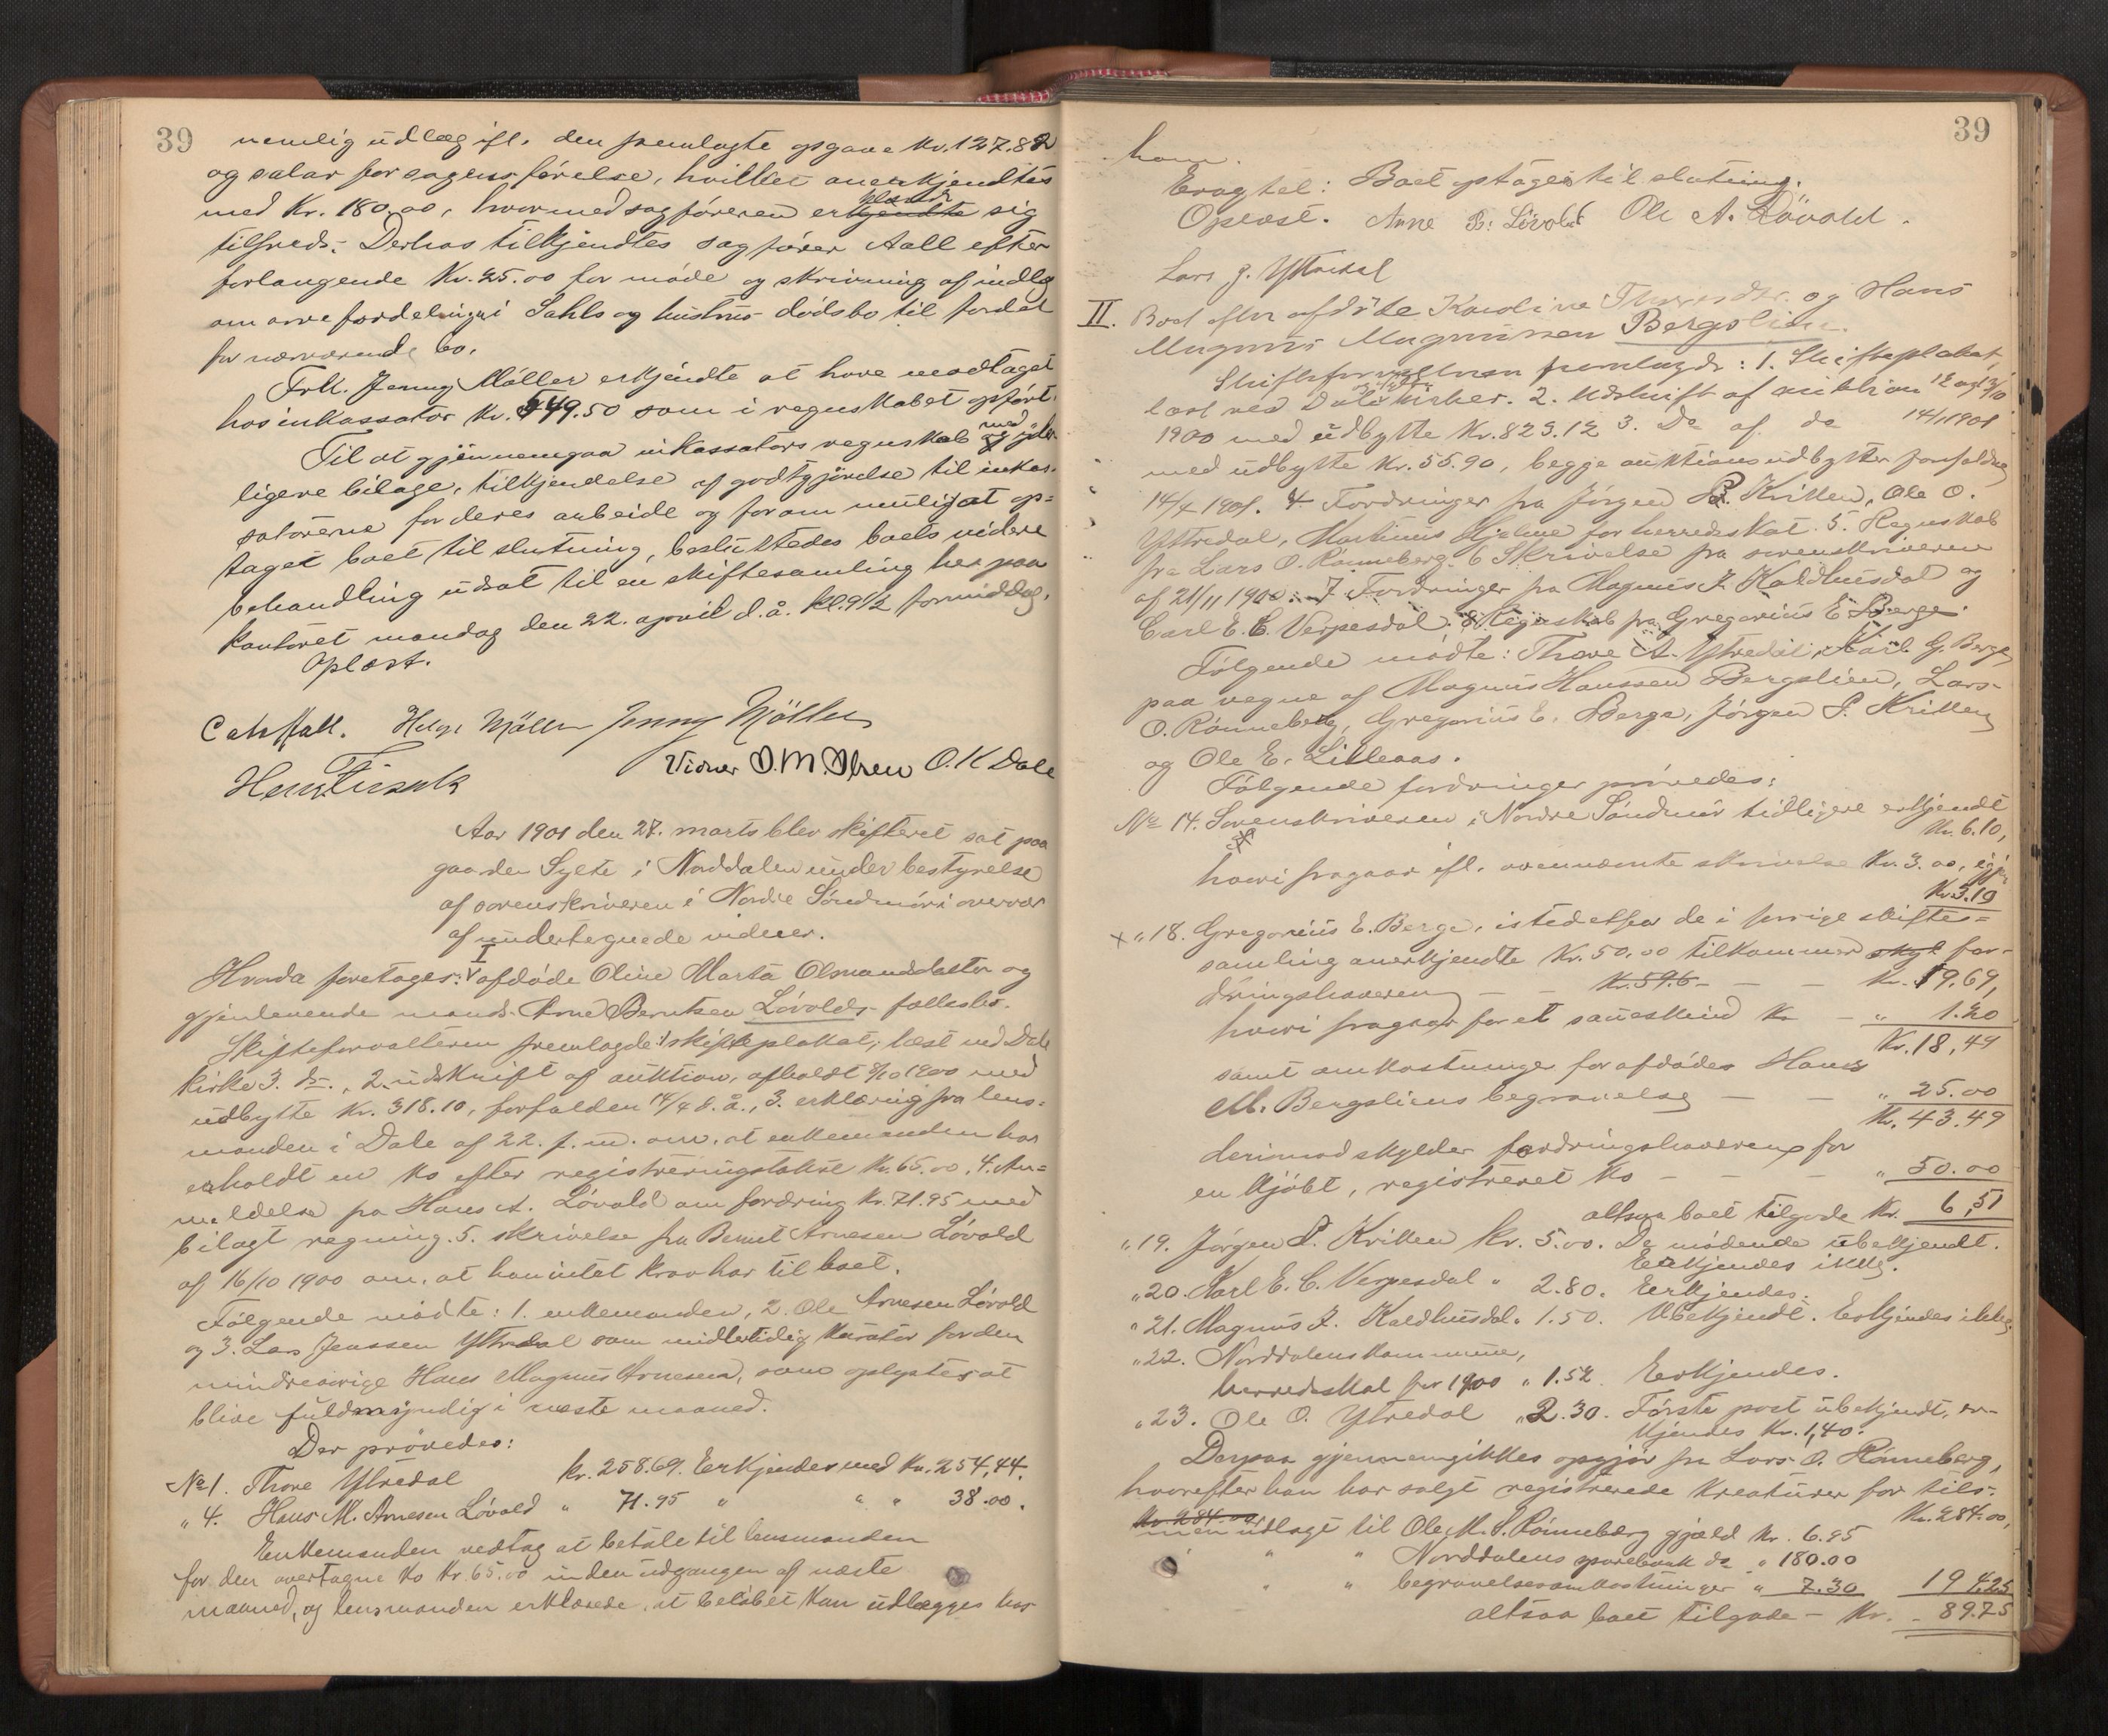 39
nemlig udlæg ifl. den fremlagte opgave Kr. 127.82
og salær for sagens förelse, hvilket anerkjendtes
med Kr. 180.00, hvormed sagföreren erkjendte sig
tilfreds. Derhos tilkjendtes sagförer Aall efter
forlangende Kr. 25.00 for möde og skrivning af indlæg
om arvefordelingen i Sahls og hustrus dödsbo til fordel
for nærværende bo.
Frk. Jenny Möller erkjendte at have modtaget
hos inkassator Kr. 449.50 som i regnskabet opfört.
Til at gjennemgaa inkassators regnskab med yder-
ligere bilage, tilkjendelse af godtgjörelse til inkas-
satorerne for deres arbeide og for om muligt at op=
taget boet til slutning, besluttedes boets videre
behandling udsat til en skiftesamling her paa
kontoret mandag den 22. april d. å. kl. 9 1/2 formiddag.
Oplæst.
C. Aall. Helga Möller Jenny Möller
Vidner O. M. Olsen O. K Dale
Aar 1901 den 27. marts blev skifteret sat paa
gaarden Sylte i Norddalen under bestyrelse
af sorenskriveren i Nordre Söndmör i overvær
af undertegnede vidner.
I
Hvorda foretages: afdöde Oline Marta Olsmandsdatter og
gjenlevende mands Arne Berntsen Lövolds fællesbo.
Skifteforvalteren fremlagde: 1 skifteplakat, læst ved Dale
kirke 3. ds., 2. udskrift af auktion, afholdt 8/10 1900 med
udbytte Kr. 318.10, forfalden 14/4 d. å., 3. erklæring fra lens=
manden i Dale af 22. f. m. om, at enkemanden har
erholdt en ko efter registreringstakst Kr. 65.00. 4. An=
meldelse fra Hans A. Lövold om fordring Kr. 71.95 med
bilagt regning. 5. skrivelse fra Bernt Arnesen Lövold
af 16/10 1900 om, at han intet krav har til boet.
Fölgende mödte: 1. enkemanden, 2. Ole Arnesen Lövold
og 3. Lars Jenssen Ytredal som midlertidig kurator for den
mindreaarige Hans Magnus Arnesen, som oplystes at
blive fuldmyndig i næste maaned.
Der prövedes:
No 1. Thore Ytredal kr. 258.69. Erkjendes med Kr. 254,44.
" 4. Hans M. Arnesen Lövold " 71.95 " " " 38.00.
Enkemanden vedtog at betale til lensmanden
for den overtagne ko Kr. 65.00 inden udgangen af næste
maaned, og lensmanden erklærede, at belöbet kan udlægges hos
39
ham.
Eragtet: Boet optages til slutning.
Oplæst. Arne B. Lövold Ole A. Lövold.
Lars J. Ytredal
II. Boet efter afdöde Karoline og Hans
Magnus Magnussen Bergslien.
Skifteforvalteren fremlagde: 1. Skifteplakat,
læst ved Dale kirke. 2. Udskrift af auktion 12 og 13/10
1900 med udbytte Kr. 823.12 3. Do af do 14/1 1901
med udbytte Kr. 55.90, begge auktionsudbytter forfaldne
14/4 1901. 4. Fordringer fra Jörgen P. Krillen, Ole O.
Ytredal, Martinus Hjelme for herredskat. 5. Regnskab
fra Lars O. Rönneberg. 6 Skrivelse fra sorenskriveren
af 21/11 1900. 7 Fordringer fra Magnus J. Kaldhusdal og
Carl E. C. Verpesdal. 8 Regnskab fra Gregorius E. Berge.
Fölgende mödte: Thore A. Ytredal, Karl G. Berge
paa vegne af Magnus Hanssen Bergslien, Lars
O. Rönneberg, Gregorius E. Berge, Jörgen P. Krillen
og Ole E. Lilleaas.
Fölgende fordringer prövedes:
No 14. Sorenskriveren i Nordre Söndmör tidligere erkjendt
Kr. 6.10,
hvori fragaar ifl. ovennævnte skrivelse Kr. 3.00,
Kr. 3.10
x " 18. Gregorius E. Berge, istedetfor de i forrige skiftes=
samling anerkjendte Kr. 50.00 tilkommer skyl for-
dringshaveren — — Kr. 59.6 — — Kr. 19.69,
hvori fragaar for et saueskind Kr — " 1.20
Kr. 18,49
samt omkostninger for afdödes Hans
M. Bergsliens begravelse — — " 25.00
Kr. 43.49
derimod skylder fordringshaveren for
en kjöbt, registreret ko — — — " 50.00
altsaa boet tilgode Kr. 6,51
" 19. Jörgen P. Krillen Kr. 5.00. De mödende ubekjendt.
Erkjendes ikke.
" 20. Karl E. C. Verpesdal " 2.80. Erkjendes.
" 21. Magnus J. Kaldhusdal " 1.50. Ubekjendt. Erkjendes ikke.
" 22. Norddalens kommune,
herredsskat for 1900 " 1.52. Erkjendes.
" 23. Ole O. Ytredal " 2.30. Förste post ubekjendt, er-
kjendes Kr. 1,40.
Derpaa gjennemgikkes opgjör fra Lars O. Rönneberg,
hvorefter han har solgt registrerede kreaturer for tils.
Kr. 284.00 Kr. 284.00,
men udlagt til Ole M. S. Rönneberg gjæld Kr. 6.95
" " " Norddalens sparebank do " 180.00
" " " begravelsesomkostninger " 7.30 194.25
altsaa boet tilgode — Kr. - 89.75